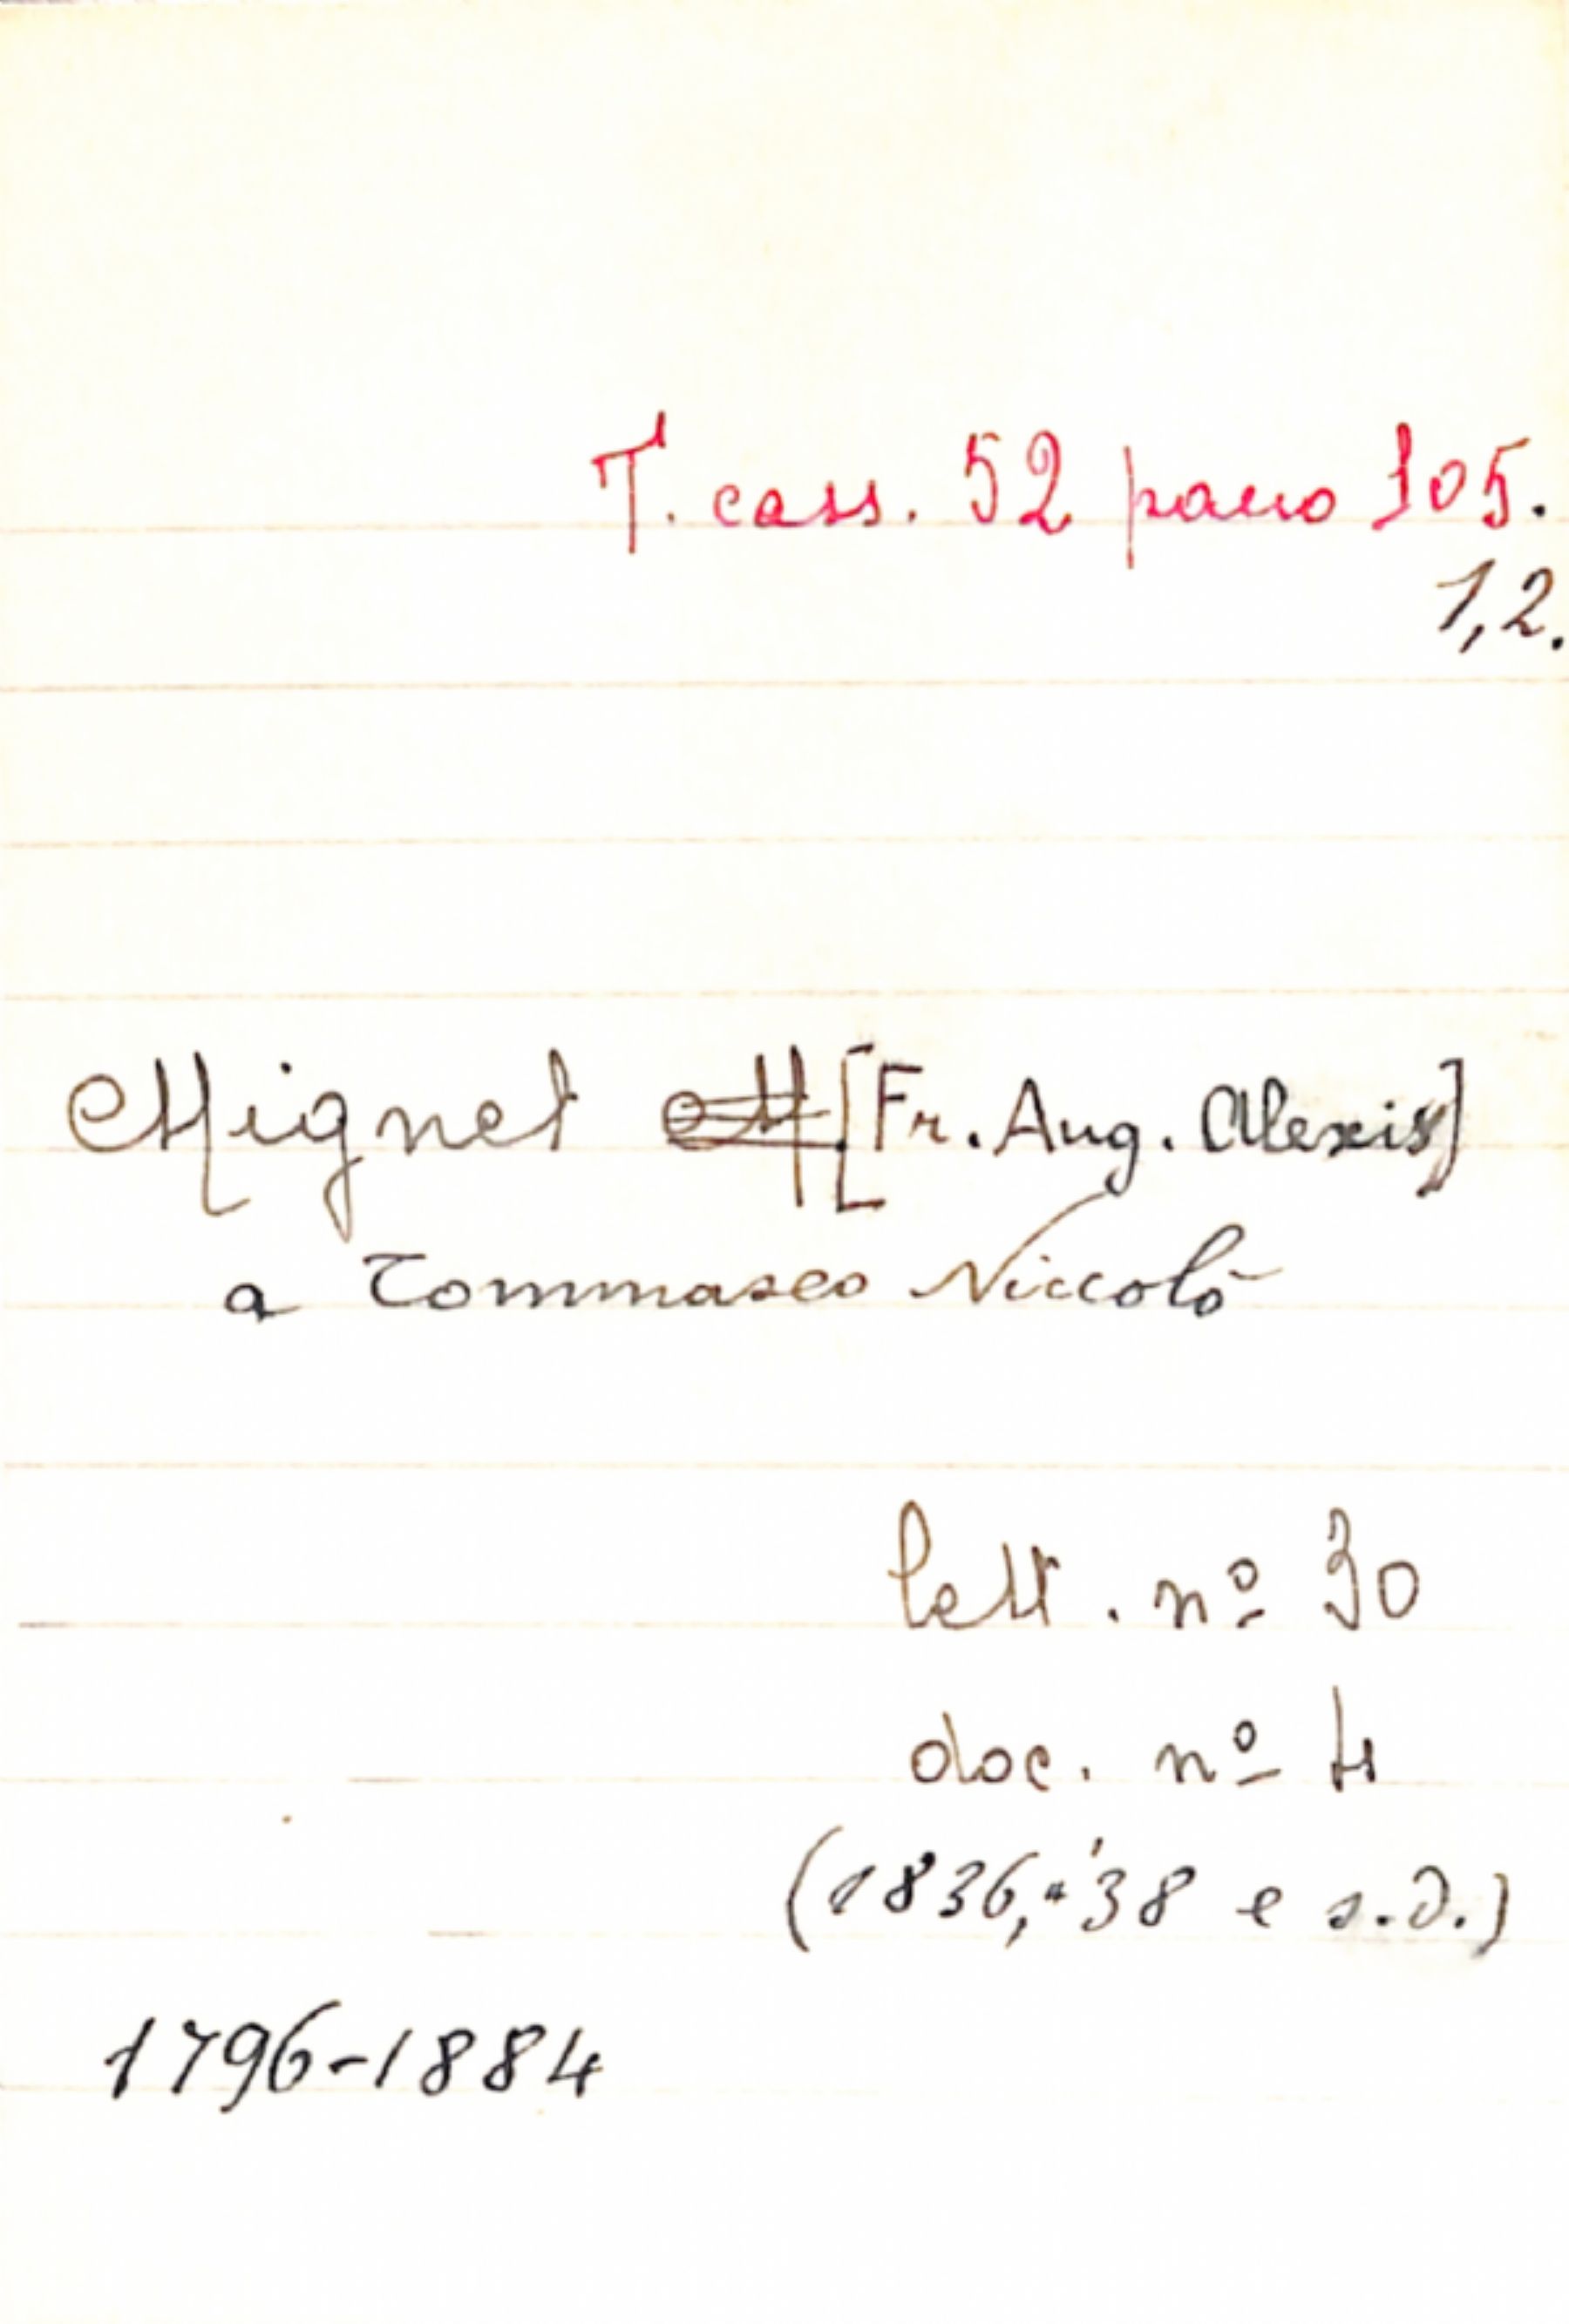 T. cass. 52 pacco 105.
1,2.
Mignet M [Fr. Aug. Alexis]
a Tommaseo Niccolò
lett. nº 30
doc. nº 4
(1836, "'38 e s.d.)
1796-1884